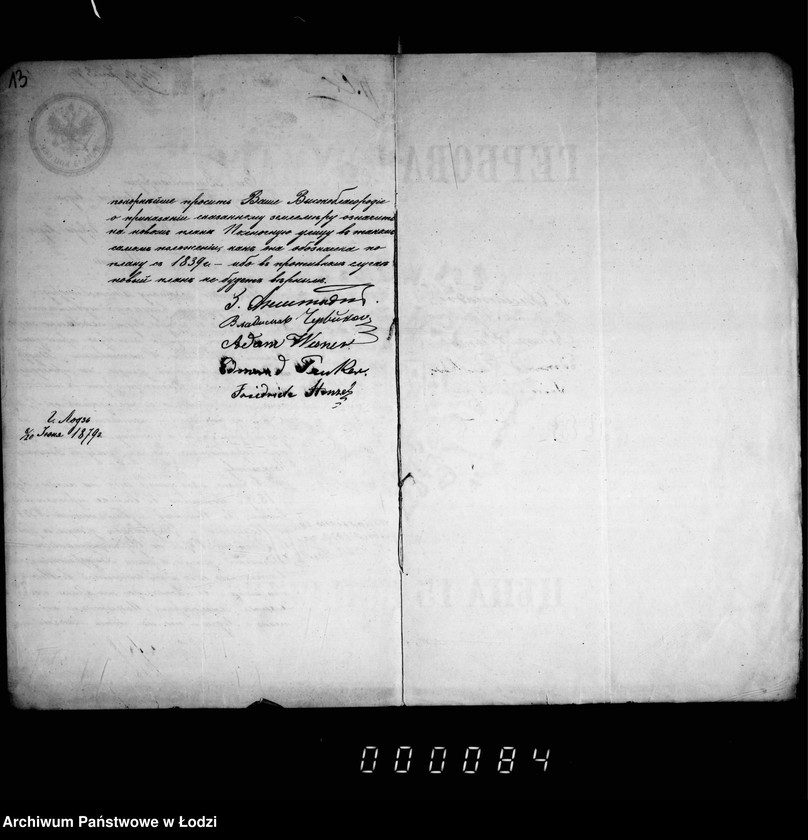 13
покорнѣйше просить Ваше Высокоблагородіе
о приказаніи сказанному землемѣру означить
на новомъ плана Полносную улицу въ такомъ
самомъ положеніи, какъ она обозначена по
плану съ 1839 г. — ибо въ противномъ случаѣ
новый планъ не будетъ вѣрнымъ.
Владиславъ
Adam Werner
Edmund
Friedrich Henzel
Г. Лодзь
Іюня 1879 г.
ГЕРБОВАЯ
ЦѢНА 15
000084
Archiwum Państwowe w Łodzi